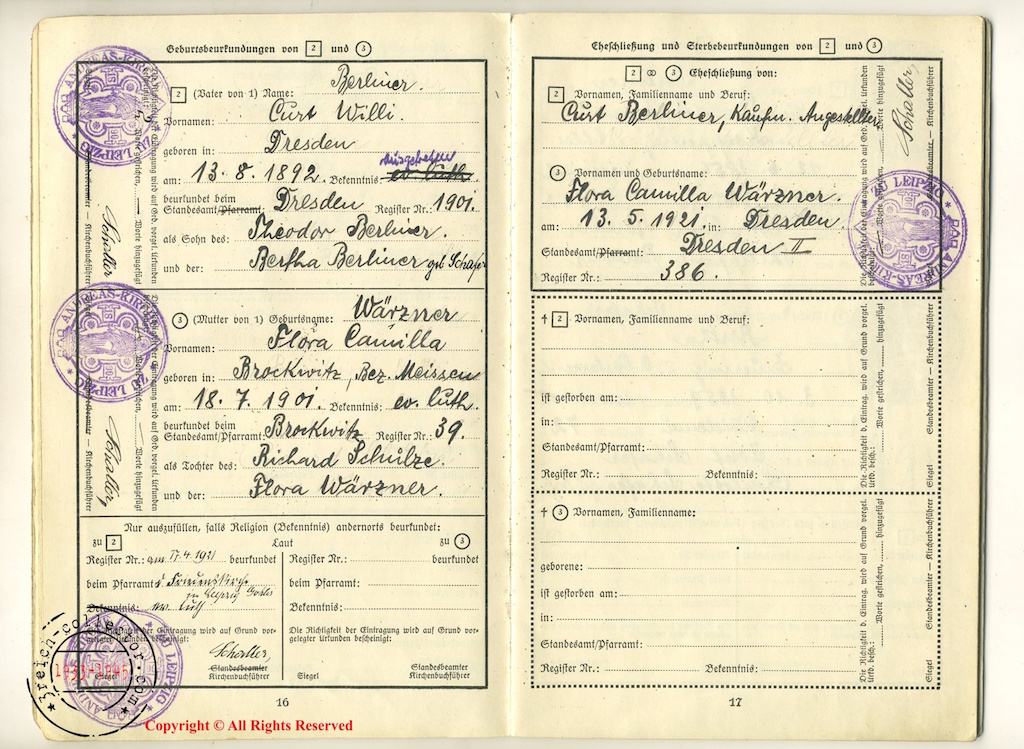 Geburtsbeurkundungen von 2 und 3
2 (Vater von 1) Name: Berliner.
Vornamen: Curt Willi.
geboren in: Dresden
ausgetreten
am: 13. 8. 1892. Bekenntnis: ev. luth.
beurkundet beim
Standesamt/Pfarramt: Dresden Register Nr.: 1901.
als Sohn des: Theodor Berliner.
und der: Bertha Berliner geb.
3 (Mutter von 1) Geburtsname: Wärzner
Vornamen: Flora Camilla
geboren in: Brockwitz, Bez. Meissen
am: 18. 7. 1901. Bekenntnis: ev. luth.
beurkundet beim
Standesamt/Pfarramt: Brockwitz Register Nr.: 39.
als Tochter des: Richard Schülze.
und der: Flora Wärzner.
Nur auszufüllen, falls Religion (Bekenntnis) anderorts beurkundet:
zu 2 Laut zu 3
Register Nr.: am 17. 4. 1921 beurkundet
beim Pfarramt: d. Friedenskirche
zu Leipzig Gohlis
Bekenntnis: ev. luth
Die Richtigkeit der Eintragung wird auf Grund vor-
gelegter Urkunden bescheinigt:
Schaller
Siegel Standesbeamter
Kirchenbuchführer
Register Nr.: beurkundet
beim Pfarramt:
Bekenntnis:
Die Richtigkeit der Eintragung wird auf Grund vor-
gelegter Urkunden bescheinigt:
Standesbeamter
Siegel Kirchenbuchführer
Schaller
Schaller
PAR ANDREAS-KIRCHE ZU LEIPZIG
PAR ANDREAS-KIRCHE ZU LEIPZIG
16
Eheschließung und Sterbebeurkundungen von 2 und 3
2 ∞ 3 Eheschließung von:
2 Vornamen, Familienname und Beruf:
Curt Berliner, Kaufm. Angestellter
3 Vornamen und Geburtsname:
Flora Camilla Wärzner.
am: 13. 5. 1921. in: Dresden.
Standesamt/Pfarramt: Dresden II
Register Nr.: 386.
Schaller
ZU LEIPZIG * PAR ANDREAS
† 2 Vornamen, Familienname und Beruf:
ist gestorben am:
in:
Standesamt/Pfarramt:
Register Nr.: Bekenntnis:
Die Richtigkeit d. Eintrag. wird auf Grund vorgel.
Urkd. besch.: Worte gestrichen, Worte hinzugefügt
Siegel Standesbeamter — Kirchenbuchführer
† 3 Vornamen, Familienname:
geborene:
ist gestorben am:
in:
Standesamt/Pfarramt:
Register Nr.: Bekenntnis:
Die Richtigkeit d. Eintrag. wird auf Grund vorgel.
Urkd. besch.: Worte gestrichen, Worte hinzugefügt
Siegel Standesbeamter — Kirchenbuchführer
17
3reich-collector.com
1933-1945
Copyright © All Rights Reserved